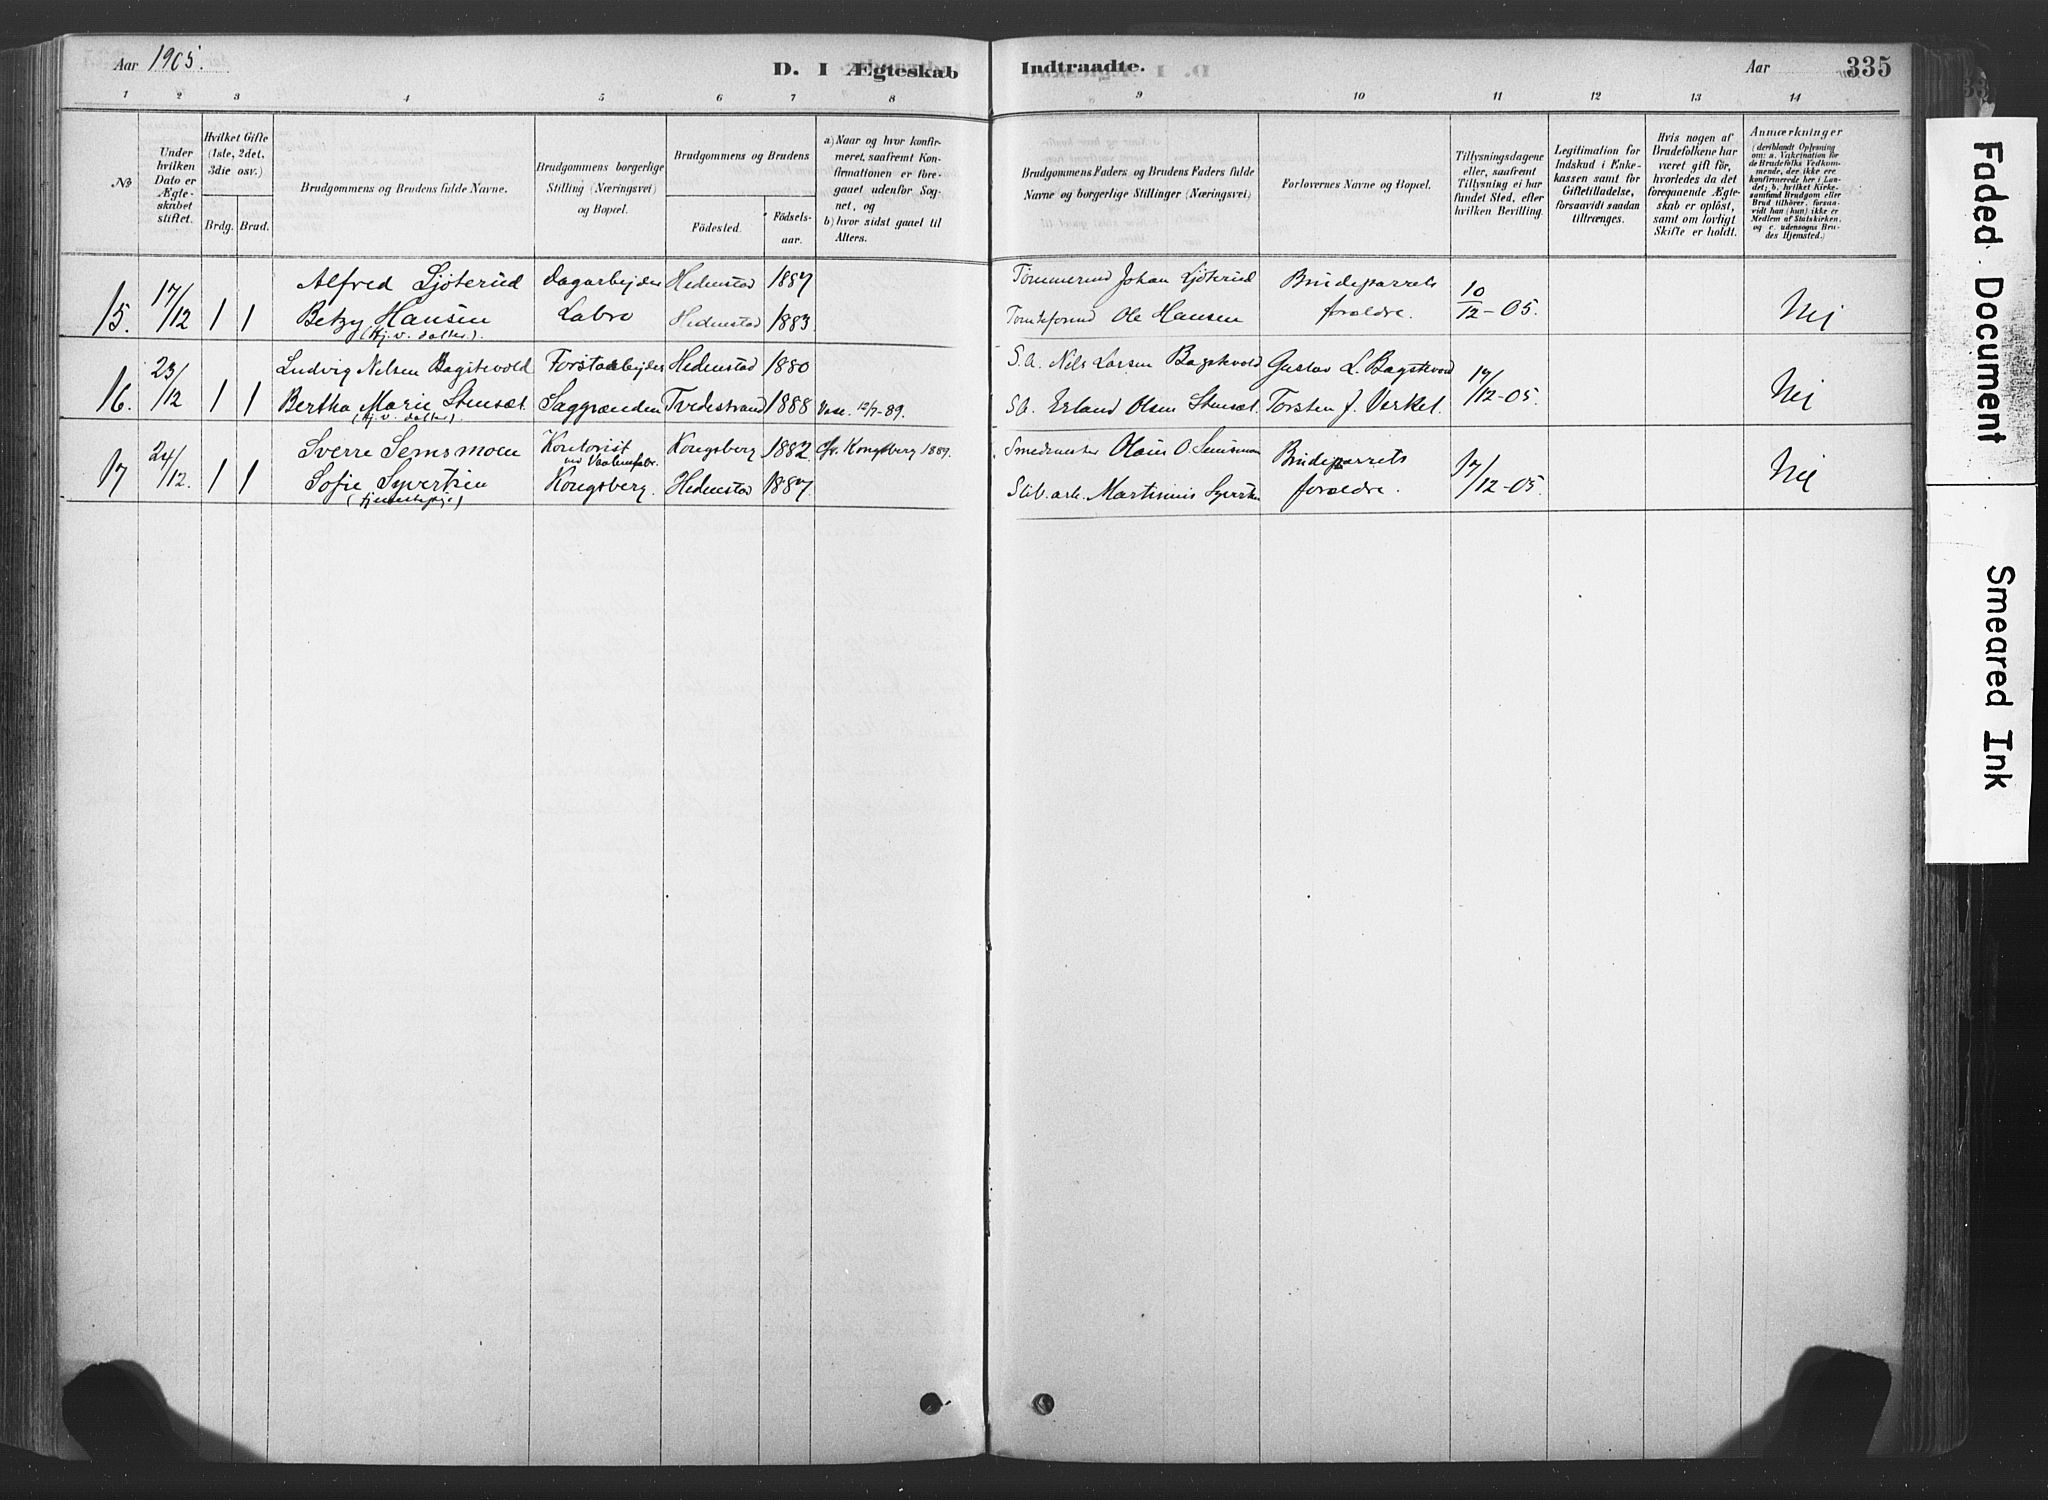 Aar 1905.
D. I Ægteskab Indtraadte.
Aar
335
1 2 3 4 5 6 7 8 9 10 11 12 13 14
№
Under hvilken Dato er Ægteskabet stiftet.
Hvilket Gifte (1ste, 2det, 3die osv.)
Brdg. Brud.
Brudgommens og Brudens fulde Navne.
Brudgommens borgerlige Stilling (Næringsvei) og Bopæl.
Brudgommens og Brudens
Födested.
Födselsaar.
a) Naar og hvor konfirmeret, saafremt Konfirmationen er foregaaet udenfor Sognet, og
b) hvor sidst gaaet til Alters.
Brudgommens Faders og Brudens Faders fulde Navne og borgerlige Stillinger (Næringsvei)
Forlovernes Navne og Bopæl.
Tillysningsdagene eller, saafremt Tillysning ei har fundet Sted, efter hvilken Bevilling.
Legitimation for Indskud i Enkekassen samt for Giftetilladelse, forsaavidt saadan tiltrænges.
Hvis nogen af Brudefolkene har været gift för, hvorledes da det foregaaende Ægteskab er oplöst, samt om lovligt Skifte er holdt.
Anmærkninger
(deriblandt Oplysning om: a. Vakcination for de Brudefolks Vedkommende, der ikke ere konfirmerede her i Landet; b. hvilket Kirkesamfund Brudgom eller Brud tilhörer, forsaavidt han (hun) ikke er Medlem af Statskirken, og c. udensogns Brudes Hjemsted.)
15. 17/12 1 1
Alfred Ljöterud Dagarbejder Hedenstad 1887
Betzy Hansen Labro Hedenstad 1883
(Hj. v. datter).
Tømmermd Johan Ljöterud Brudeparrets 10/12-05.
Ole Hansen forældre.
Nej
16. 23/12 1 1
Ludvig Nelsen Bagstevold Forstarbejder Hedenstad 1880
Bertha Marie Stensæt. Saggrenden Tvedestrand 1888 Vacc. 12/7-89.
(Hj. v. datter).
S.A. Nils Larsen Bagstevold Gustav L. Bagstevold 17/12-05.
S.A. Erland Olsen Stensæt. Torsten J. Verket.
Nej
17 24/12. 1 1
Sverre Semsmoen Kontorist Kongsberg 1882
ved Vaabenfabr.
Sofie Syvertsen Kongsberg. Hedenstad 1887
(tjenestepige)
Smedmester Olaus O. Semsmoen Brudeparrets 17/12-05.
Martinius Syvertsen forældre.
Nej
Faded Document
Smeared Ink